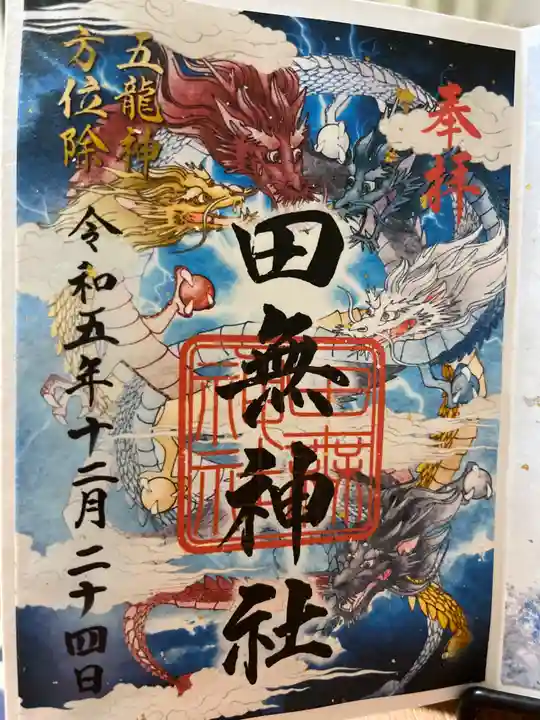 奉拝
田無神社
五龍神
方位除
令和五年十二月二十四日